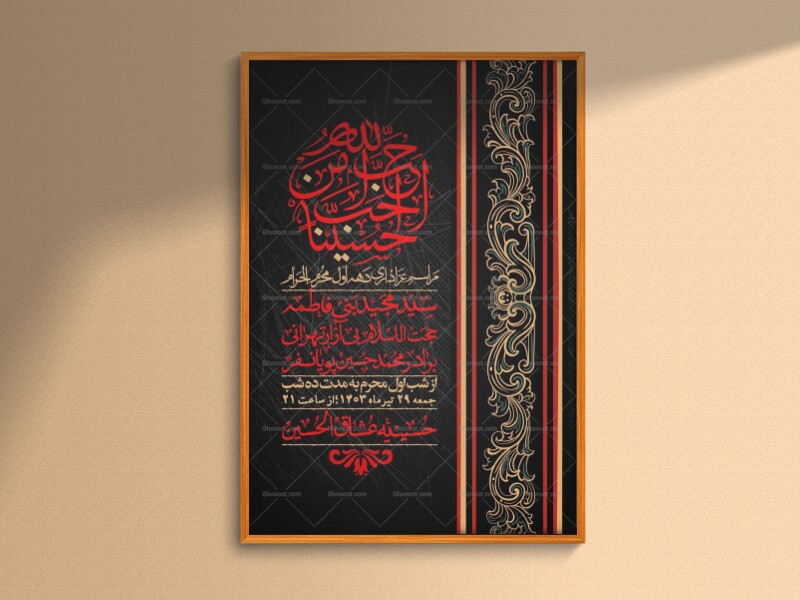 احب الله من
احب حسینا
مراسم عزاداری دهه اول محرم الحرام
سید مجید بنی فاطمه
حجت الاسلام بی آزار تهرانی
برادر محمد حسین پویانفر
از شب اول محرم به مدت ده شب
جمعه ۲۹ تیر ماه ۱۴۰۳؛ از ساعت ۲۱
حسینیه عشاق الحسین
Ghonoot.com